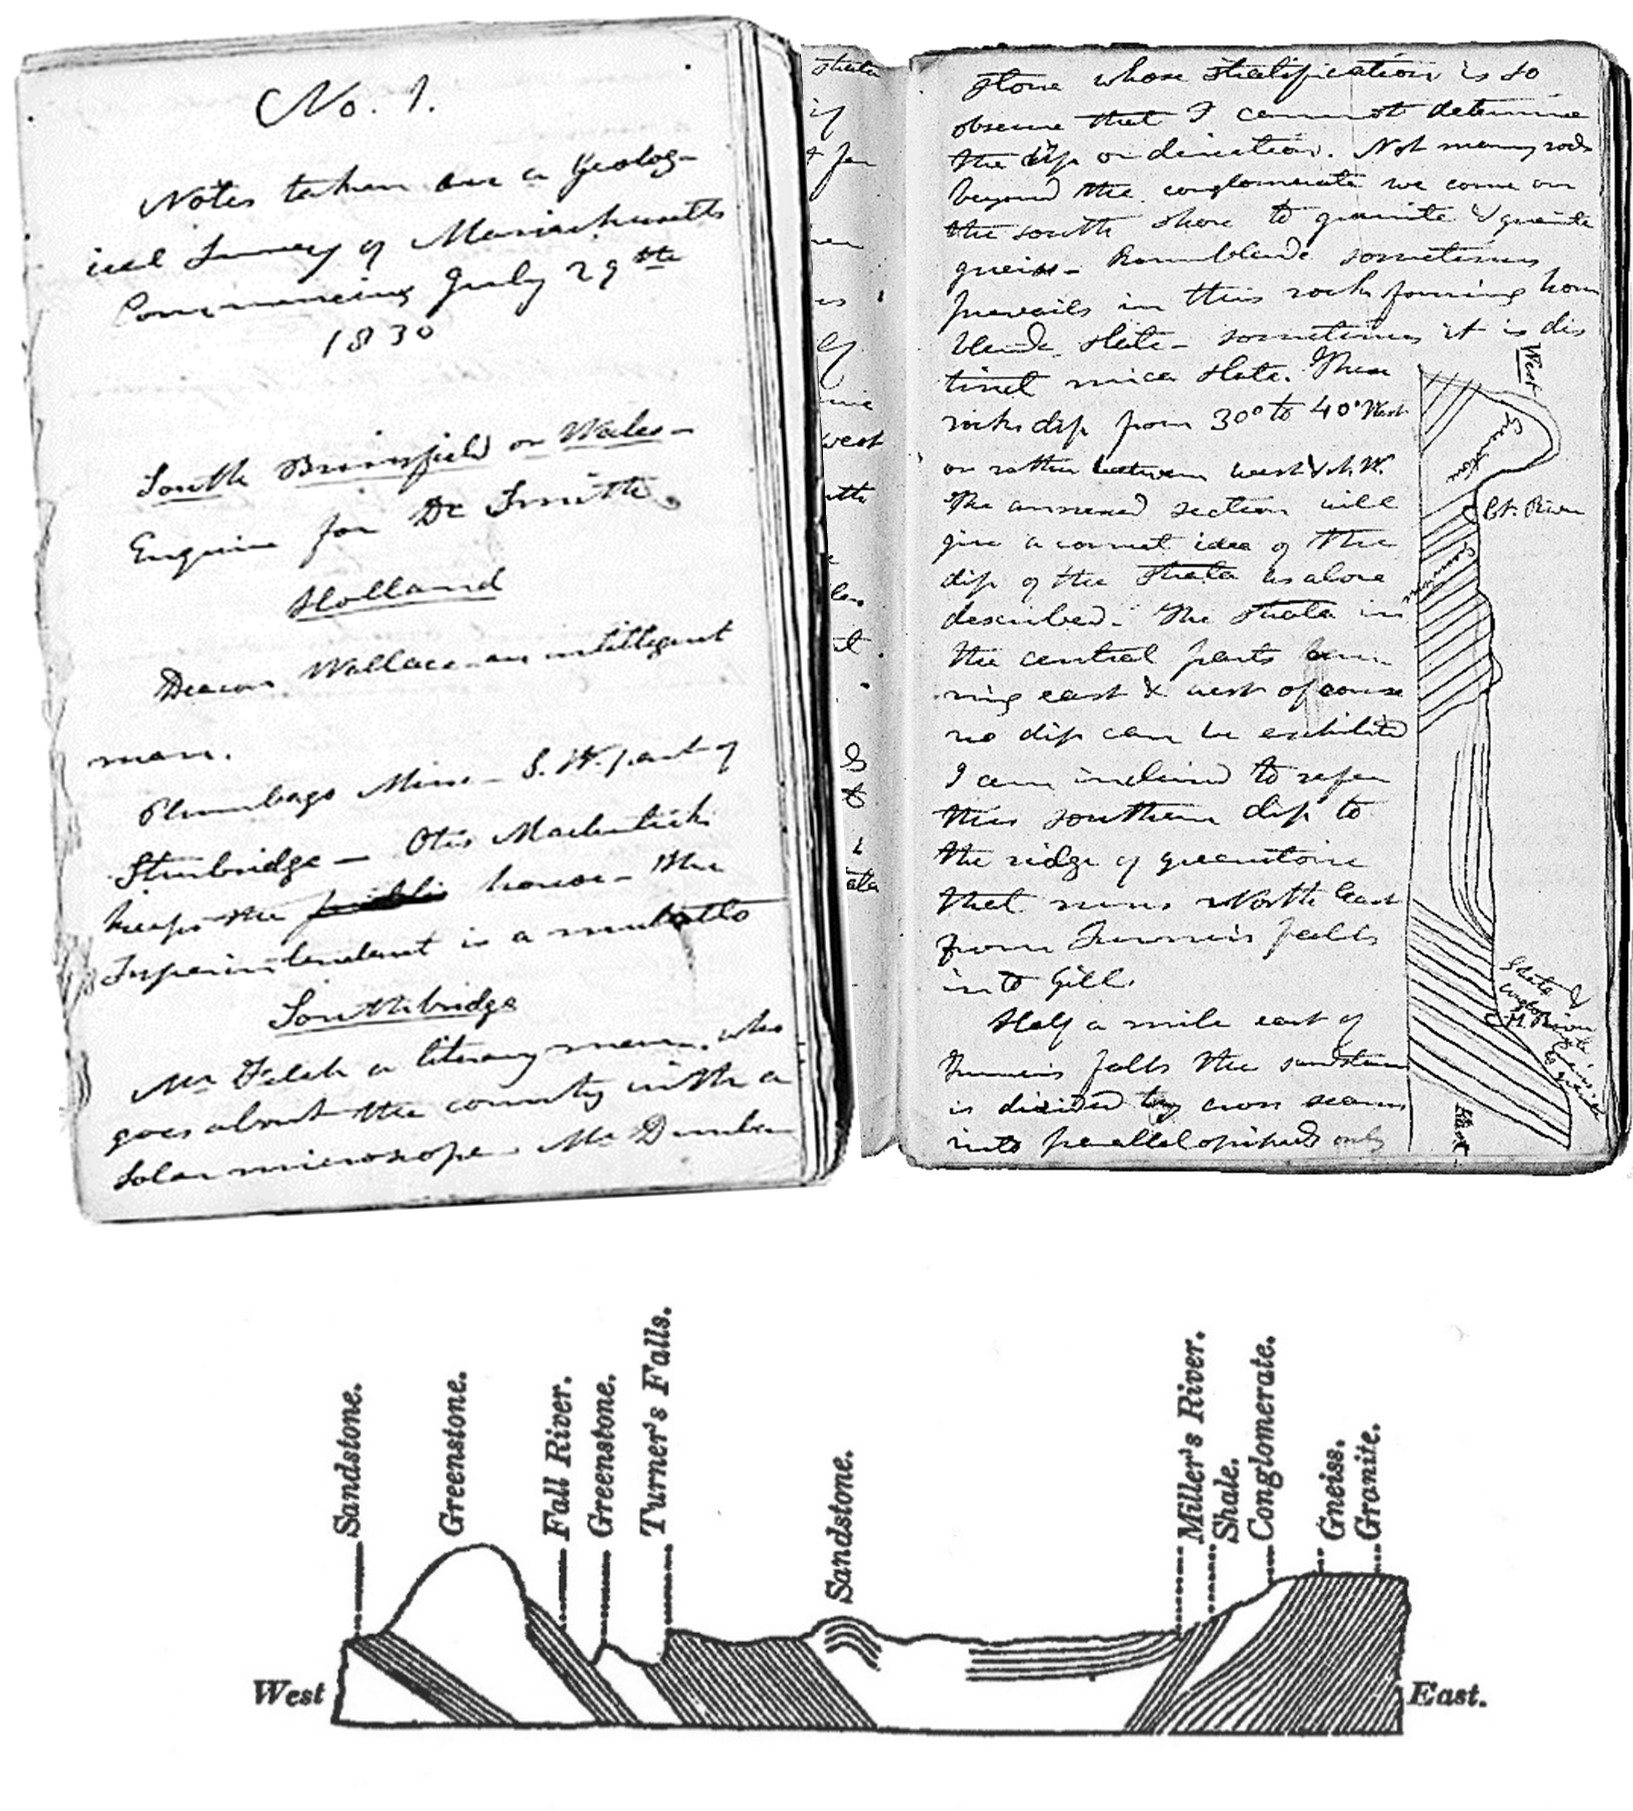 No. 1.
Notes taken on a Geolog-
ical Survey of Massachusetts
Commencing July 29th
1830
South Brimfield or Wales-
Enquire for Dr Smith
Holland
Deacon Wallace - an intelligent
man.
Plumbago Mine - S. W. part of
Sturbridge - Otis
keeps the public house - the
Superintendent is a mulatto
Southbridge
Mr Felch a literary man, who
goes about the country with a
solar microscope. Mr Dunbar
strata
if
t for
west
stone whose stratification is so
obscure that I cannot determine
the dip or direction. Not many rods
beyond the conglomerate we come on
the south shore to granite & granite
gneiss - hornblende sometimes
prevails in this rock forming horn
blende slate - sometimes it is dis
tinct mica slate. These
rocks dip from 30° to 40° West
or rather between west & N. W.
The annexed section will
give a correct idea of the
dip of the strata as above
described. The strata in
the central parts run-
ning east & west of course
no dip can be exhibited
I am inclined to refer
this southern dip to
the ridge of greenstone
that runs North East
from Turners falls
into Gill.
Half a mile east of
Turners falls the sandstone
is divided by cross seams
into parallelopipeds only
West
Greenstone
Ct. River
Slate &
M. River
East
Sandstone.
Greenstone.
Fall River.
Greenstone.
Turner's Falls.
Sandstone.
Miller's River.
Shale.
Conglomerate.
Gneiss.
Granite.
West
East.